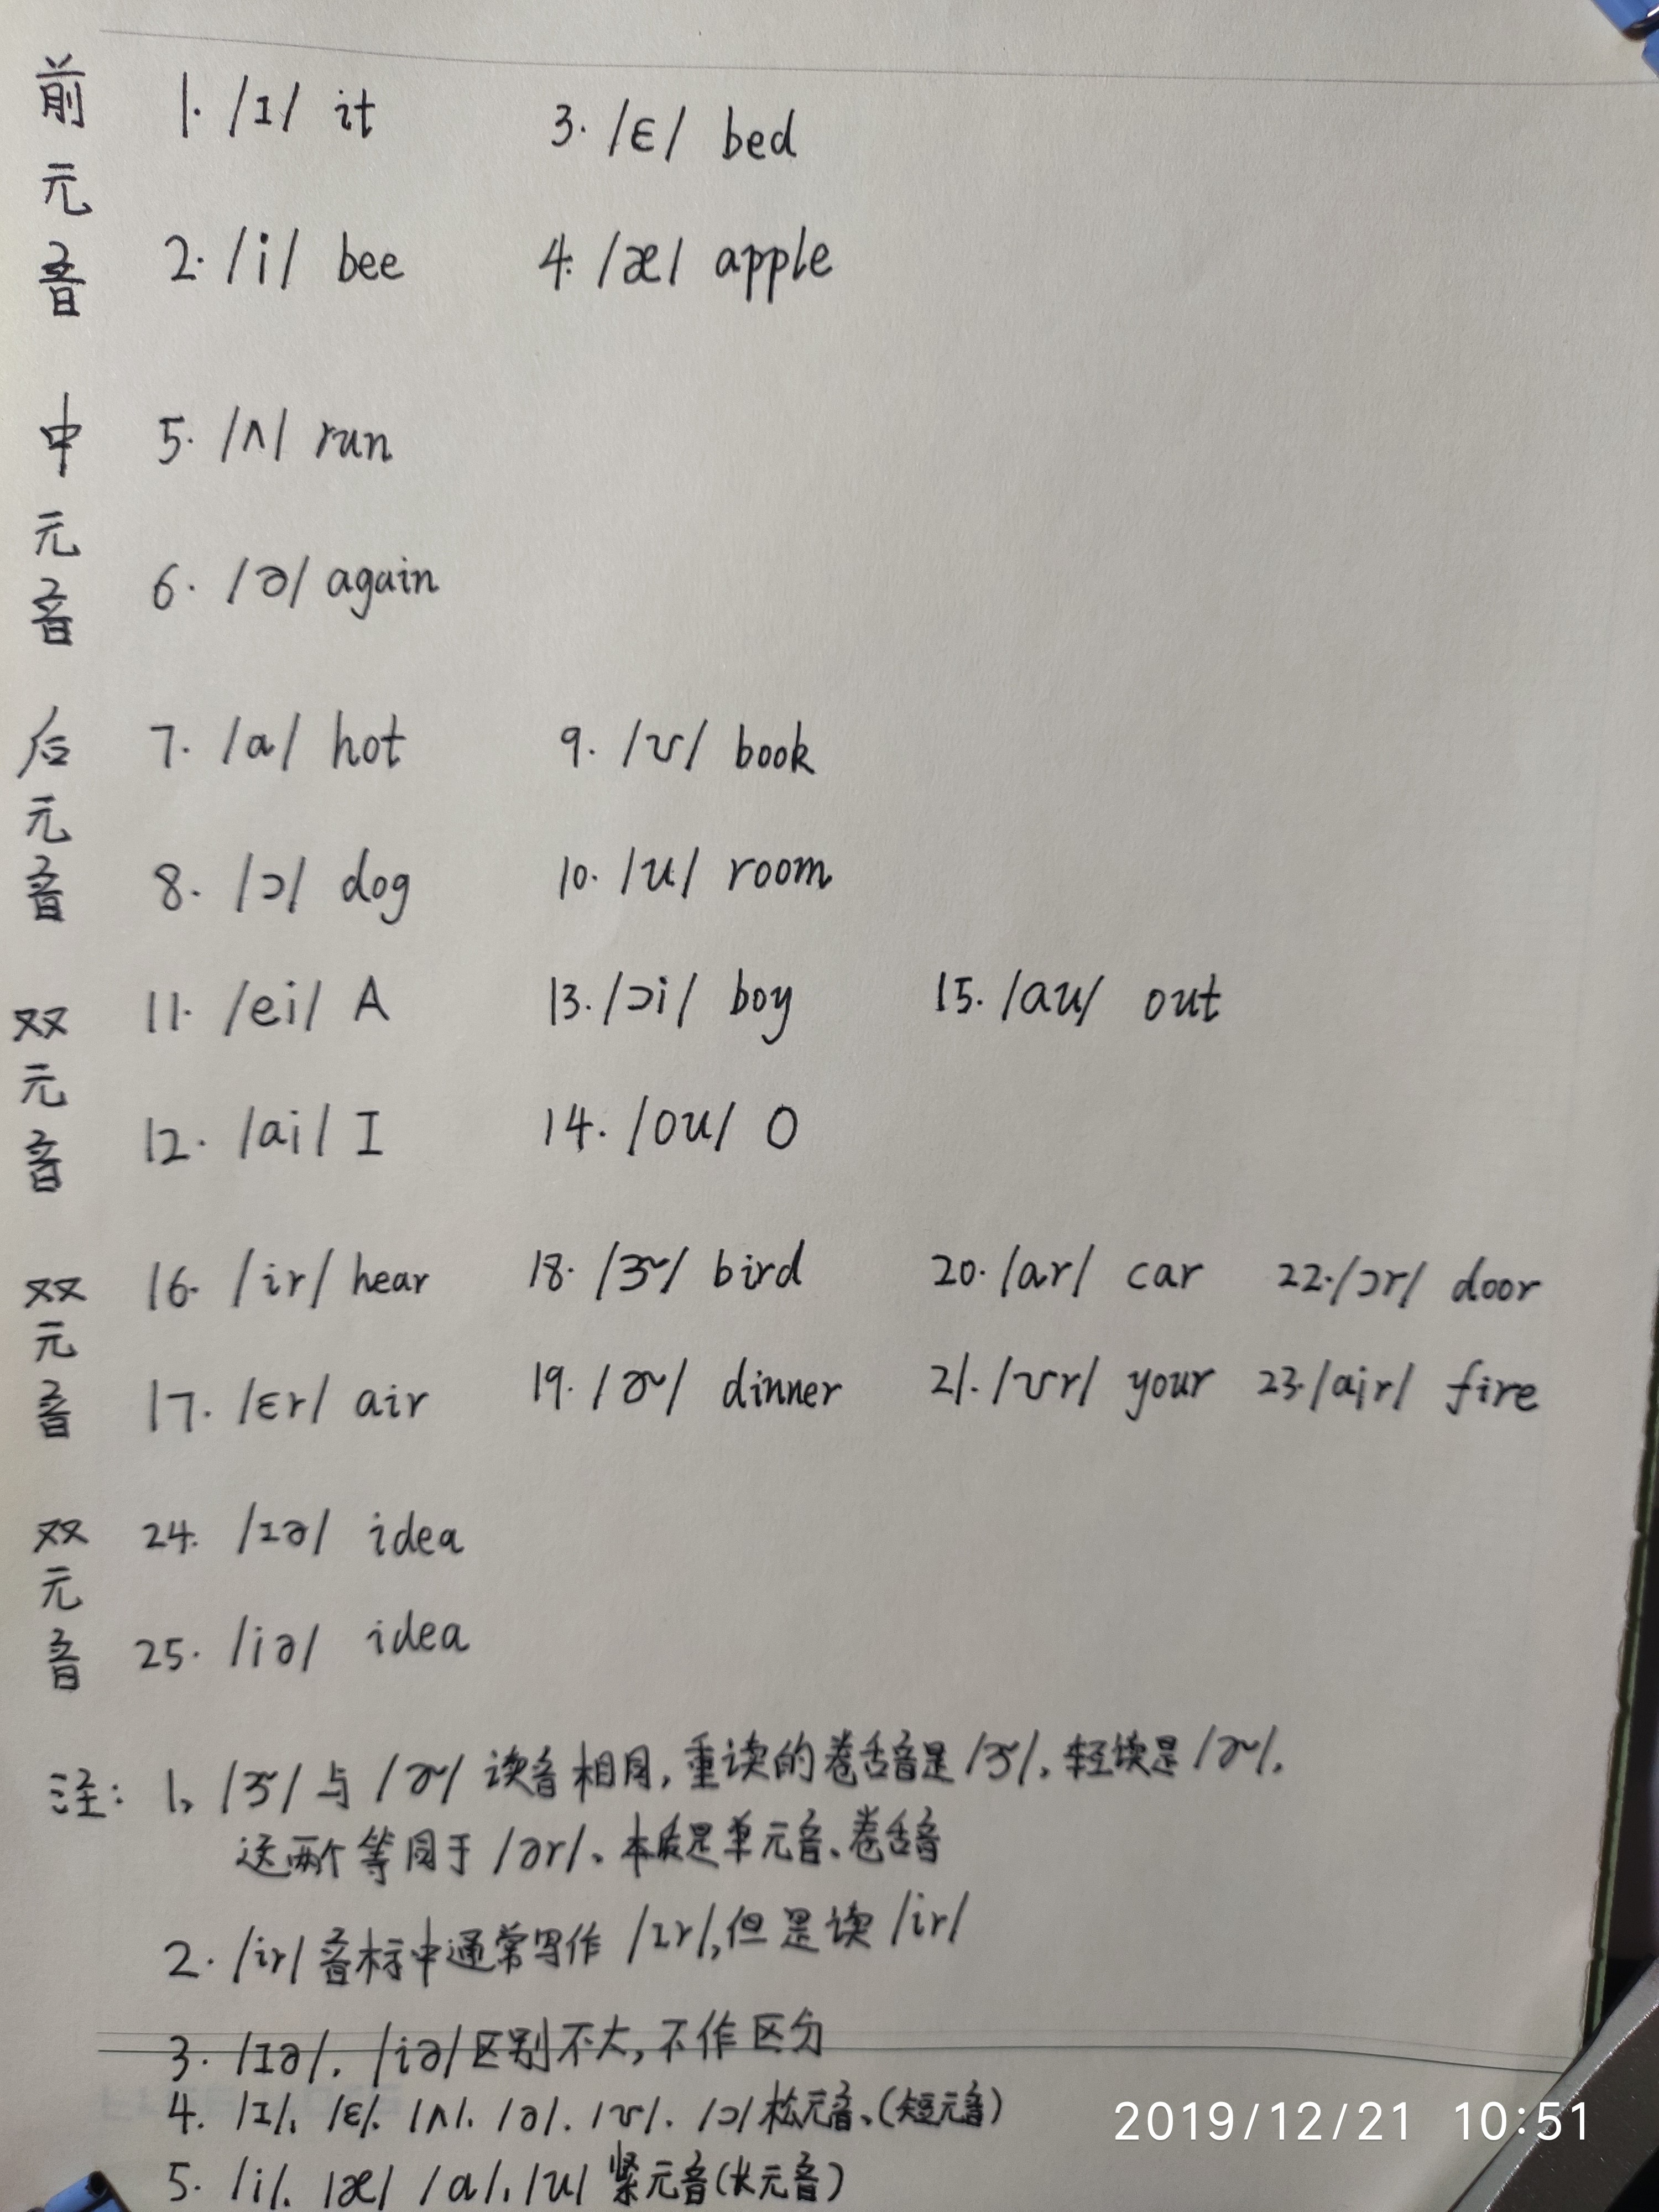 前元音
1. /ɪ/ it 3. /ɛ/ bed
2. /i/ bee 4. /æ/ apple
中元音
5. /ʌ/ run
6. /ə/ again
后元音
7. /ɑ/ hot 9. /ʊ/ book
8. /ɔ/ dog 10. /u/ room
双元音
11. /ei/ A 13. /ɔi/ boy 15. /au/ out
12. /ai/ I 14. /ou/ O
双元音
16. /ir/ hear 18. /ɝ/ bird 20. /ar/ car 22. /ɔr/ door
17. /ɛr/ air 19. /ɚ/ dinner 21. /ʊr/ your 23. /air/ fire
双元音
24. /ɪə/ idea
25. /iə/ idea
注: 1、/ɝ/ 与 /ɚ/ 读音相同, 重读的卷舌音是/ɝ/、轻读是/ɚ/,
这两个等同于/ər/、本质是单元音、卷舌音
2. /ir/音标中通常写作 /ɪr/,但是读 /ir/
3. /ɪə/. /iə/区别不大, 不作区分
4. /ɪ/、/ɛ/、/ʌ/、/ə/、/ʊ/、/ɔ/松元音、(短元音)
5. /i/、/æ/ /ɑ/、/u/ 紧元音(长元音)
2019/12/21 10:51